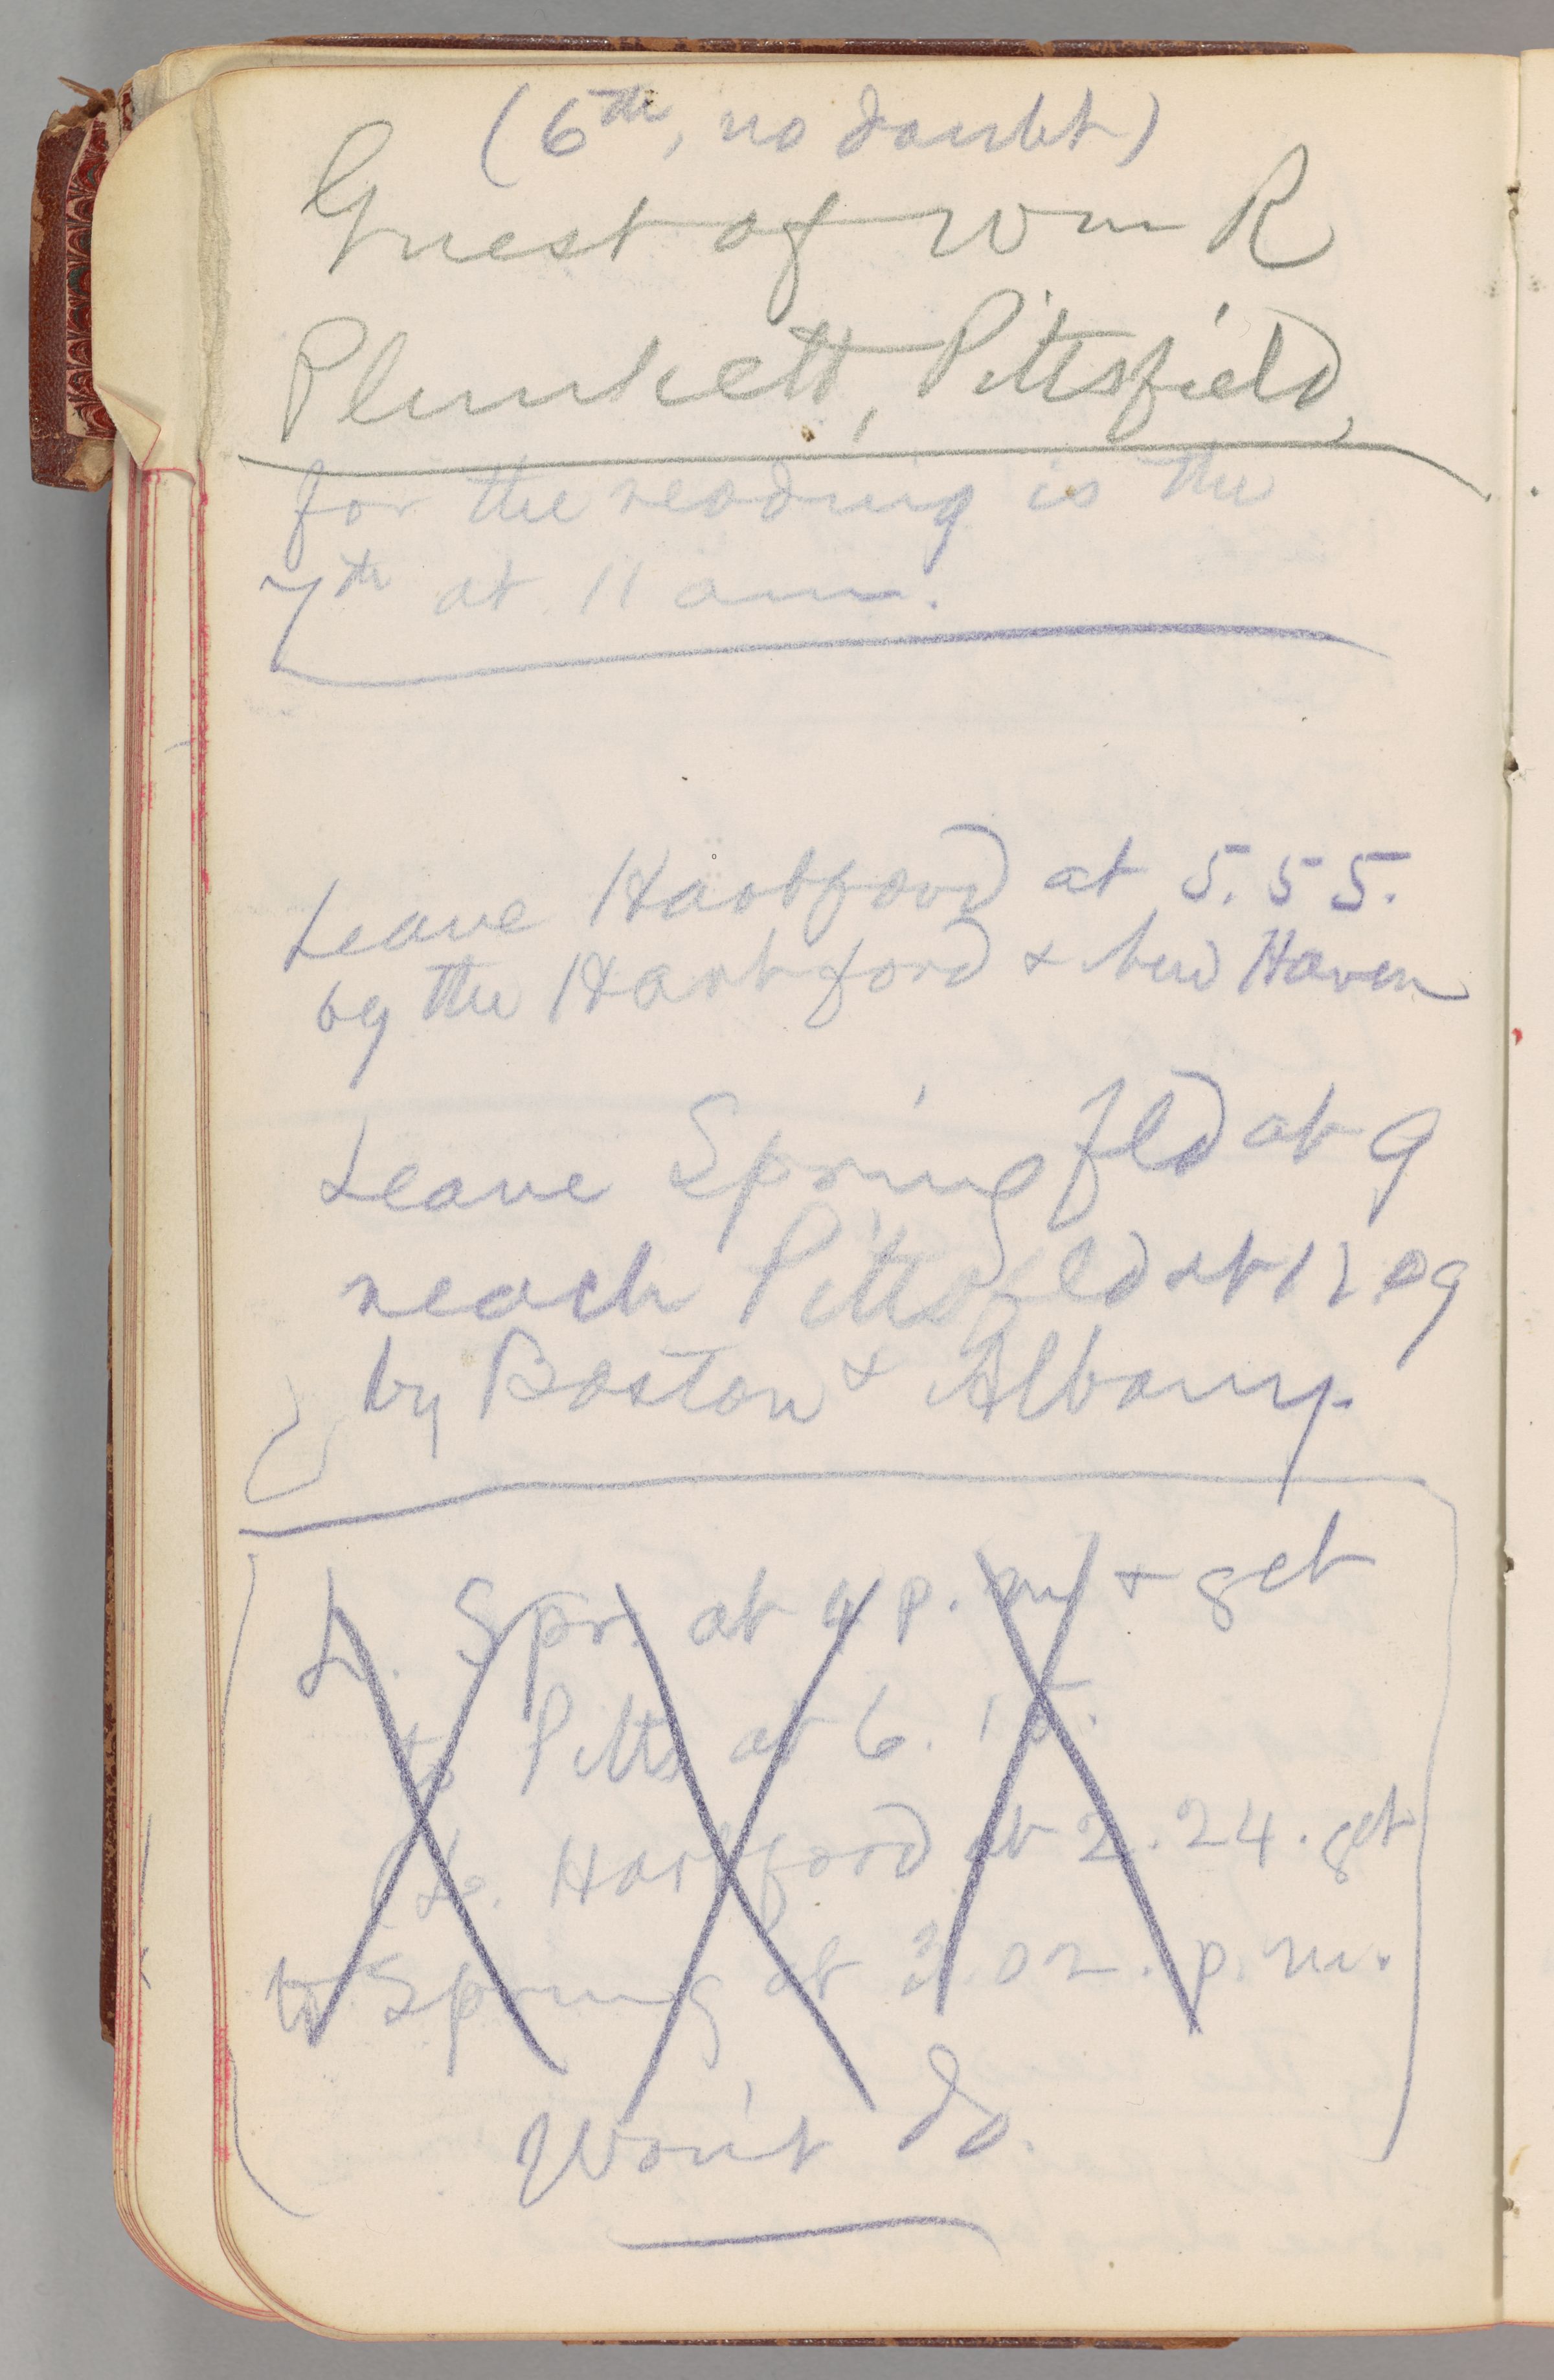 (6th, no doubt)
Guest of Wm R
Plunkett, Pittsfield,
for the reading is the
7th at 11 am.
Leave Hartford at 5.55.
by the Hartford & New Haven
Leave Springfld at 9
reach Pittsfeld at 11.09
by Boston & Albany.
L. Spr. at 4 p.m & get
to Pitts at 6.15.
(L. Hartford at 2.24. get
to Spring at 3.02. p.m.
Won't do.